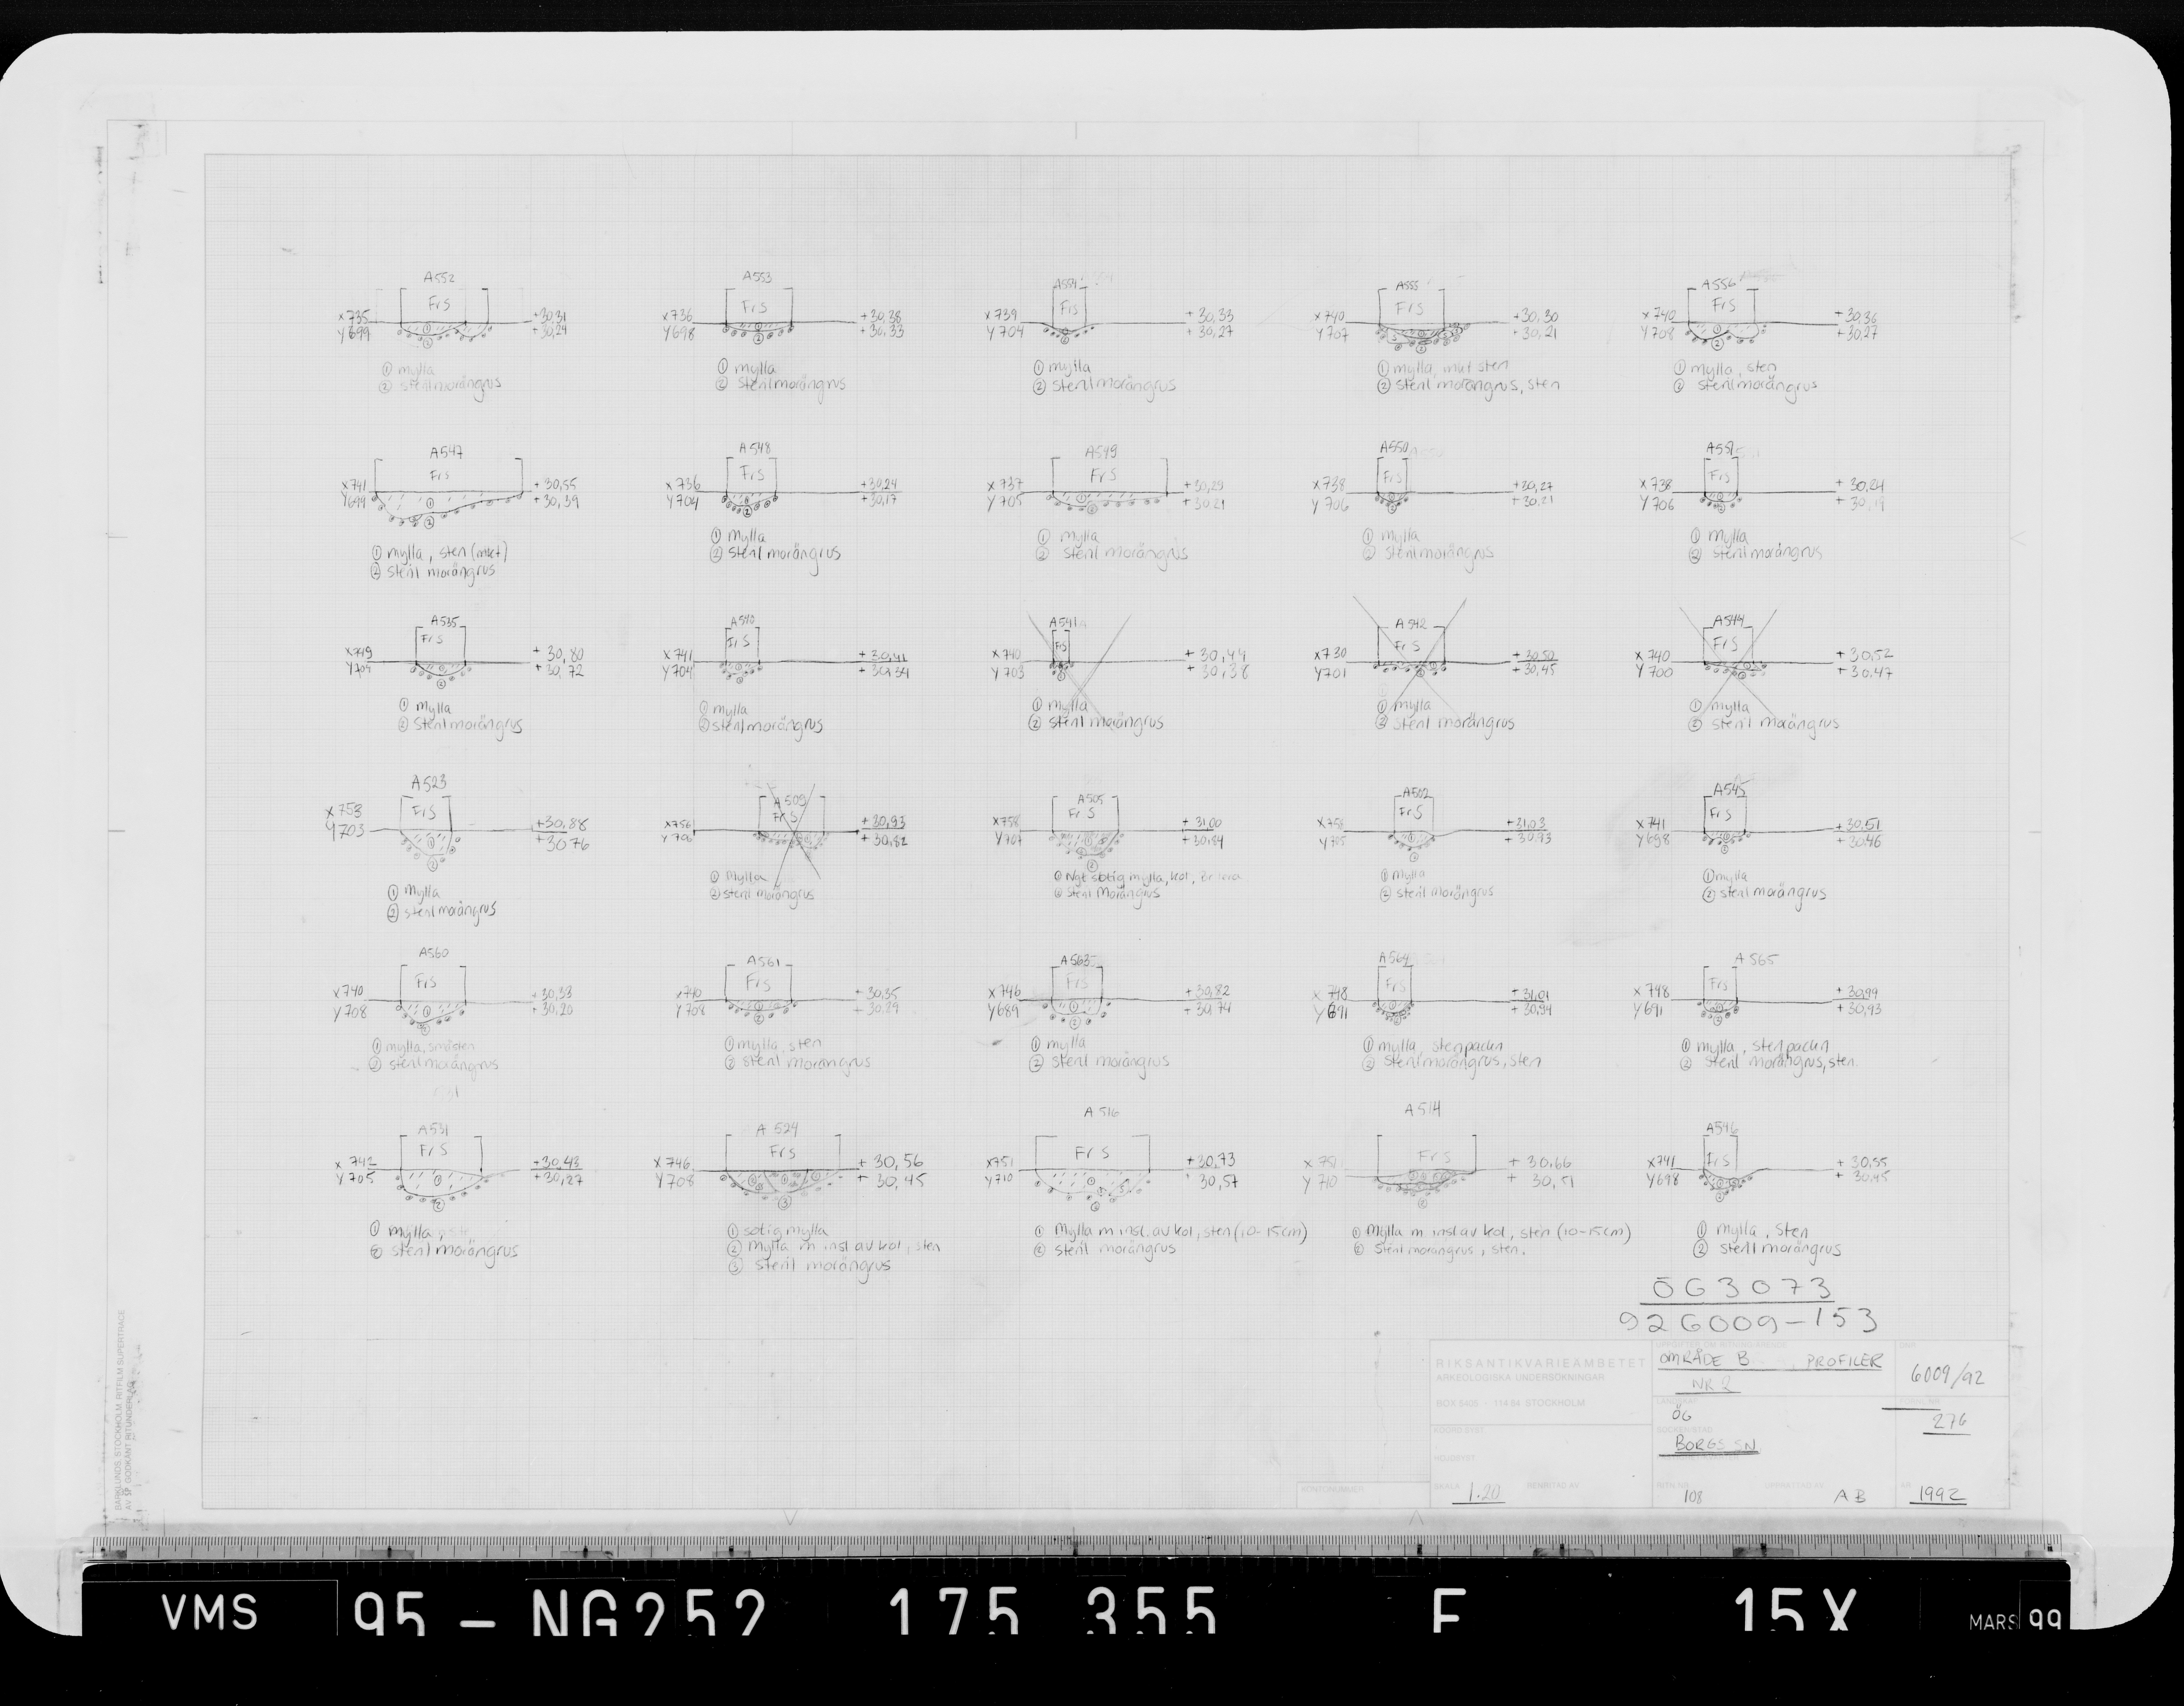 A552
Frs
x735
Y699
+30,31
+30,24
① mylla
② steril morängrus
A553
Frs
x736
Y698
+30,38
+30,33
① mylla
② steril morängrus
A554
Frs
x739
Y704
+30,33
+30,27
① mylla
② steril morängrus
A555
Frs
x740
Y707
+30,30
+30,21
① mylla, mkt sten
② steril morängrus, sten
A556
Frs
x740
Y708
+30,36
+30,27
① mylla, sten
② steril morängrus
A547
Frs
x741
Y699
+30,55
+30,39
① mylla, sten (mkt)
② steril morängrus
A548
Frs
x736
Y704
+30,24
+30,17
① mylla
② steril morängrus
A549
Frs
x737
Y705
+30,29
+30,21
① mylla
② steril morängrus
A550
Frs
x738
Y706
+30,27
+30,21
① mylla
② steril morängrus
A551
Frs
x738
Y706
+30,24
+30,19
① mylla
② steril morängrus
A535
Frs
x749
Y704
+30,80
+30,72
① mylla
② steril morängrus
A540
Frs
x741
Y704
+30,41
+30,34
① mylla
② steril morängrus
A541
Frs
x740
Y703
+30,44
30,38
① mylla
② steril morängrus
A542
Frs
x730
Y701
+30,50
+30,45
① mylla
② steril morängrus
A544
Frs
x740
Y700
+30,52
+30,47
① mylla
② steril morängrus
A523
Frs
x753
Y703
+30,88
+30,76
① mylla
② steril morängrus
A509
Frs
x756
Y706
+30,93
+30,82
① mylla
② steril morängrus
A505
Frs
x758
Y707
+31,00
+30,84
① Ngt sotig mylla, kol,
② steril morängrus
A502
Frs
x758
Y705
+31,03
+30,93
① mylla
② steril morängrus
A545
Frs
x741
Y698
+30,51
+30,46
① mylla
② steril morängrus
A560
Frs
x740
Y708
+30,33
+30,20
① mylla, småsten
② steril morängrus
A561
Frs
x740
Y708
+30,35
+30,29
① mylla, sten
② steril morängrus
A563
Frs
x746
Y689
+30,82
+30,74
① mylla
② steril morängrus
A564
Frs
x748
Y691
+31,01
+30,94
① mylla, stenpackn
② steril morängrus, sten
A565
Frs
x748
Y691
+30,99
+30,93
① mylla, stenpackn
② steril morängrus, sten.
A531
Frs
x742
Y705
+30,43
+30,27
① mylla
② steril morängrus
A 524
Frs
x746
Y708
+30,56
+30,45
① sotig mylla
② mylla m insl av kol, sten
③ steril morängrus
A 516
Frs
x751
Y710
+30,73
30,57
① Mylla m insl. av kol, sten (10-15cm)
② steril morängrus
A 514
Frs
x751
Y710
+30,66
+30,51
① Mylla m insl av kol, sten (10-15cm)
② steril morängrus, sten.
A546
Frs
x741
Y698
+30,55
+30,45
① mylla, sten
② steril morängrus
ÖG3073
926009-153
RIKSANTIKVARIEÄMBETET
ARKEOLOGISKA UNDERSÖKNINGAR
BOX 5405 - 114 84 STOCKHOLM
OMRÅDE B, PROFILER
NR 2
6009/92
ÖG
276
BORGS SN
SKALA 1:20
RENRITAD AV
108
AB
ÅR 1992
KONTONUMMER
BARKLUNDS, STOCKHOLM. RITFILM SUPERTRACE
AV SP GODKÄNT RITUNDERLAG
VMS 95-NG252 175 355 F 15X MARS 99